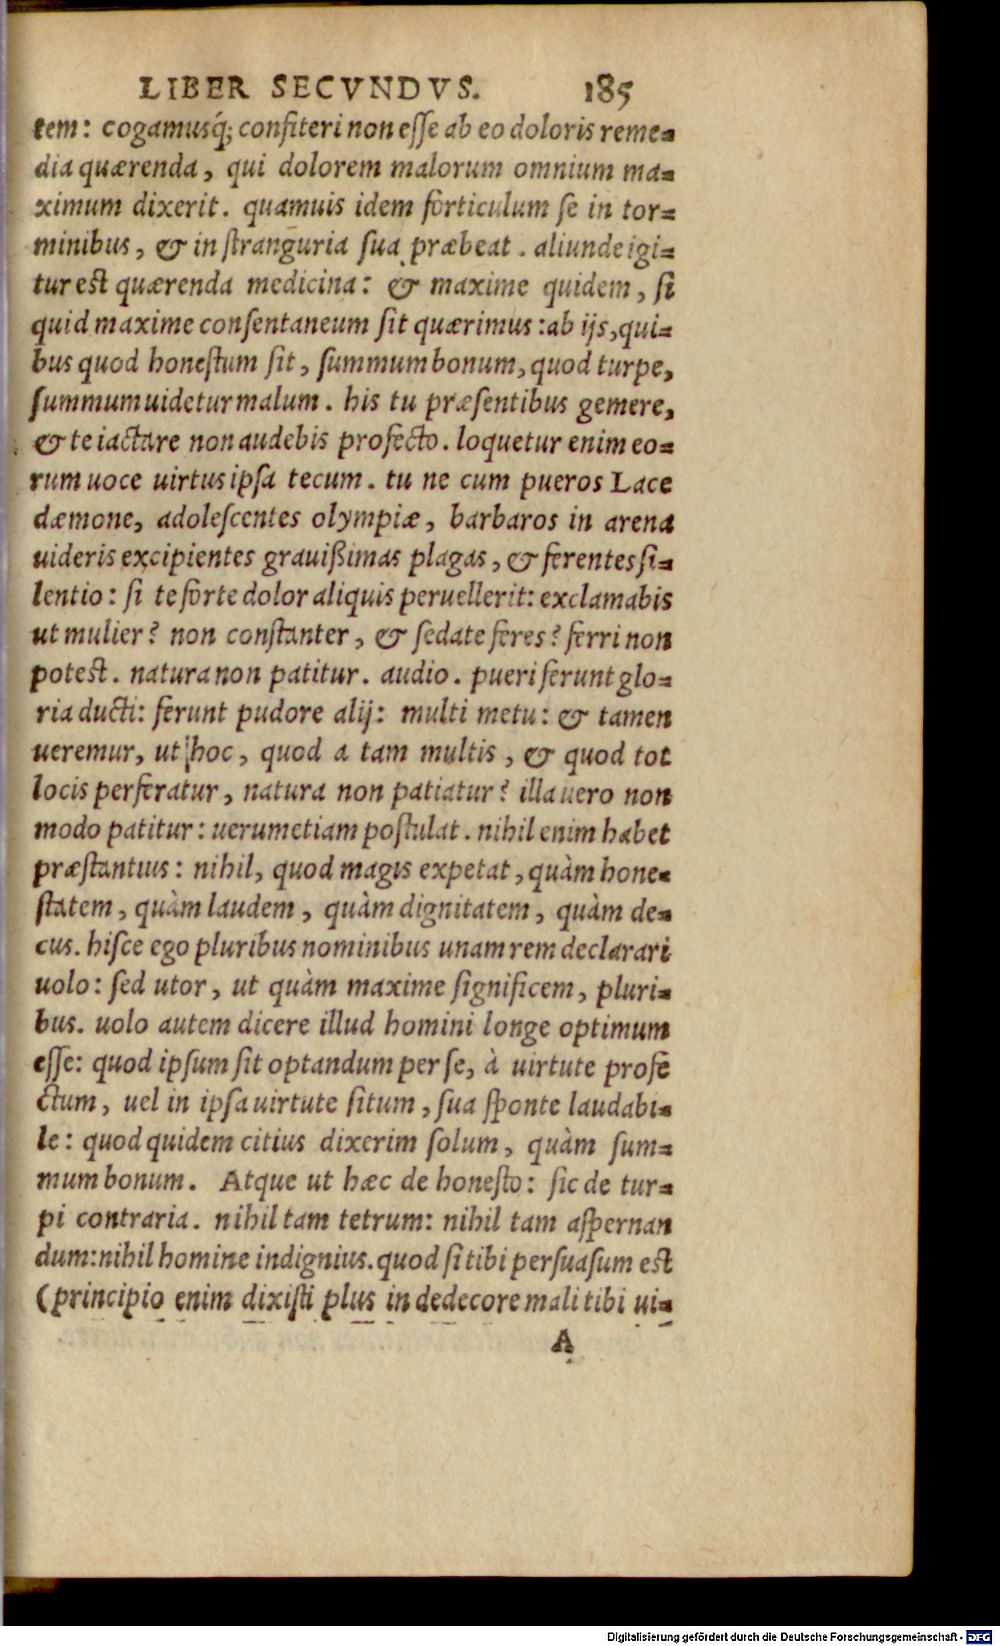 LIBER SECVNDVS. 185
tem: cogamusq́; confiteri non esse ab eo doloris reme-
dia quærenda, qui dolorem malorum omnium ma-
ximum dixerit. quamuis idem forticulum se in tor-
minibus, & in stranguria sua præbeat. aliunde igi-
tur est quærenda medicina: & maxime quidem, si
quid maxime consentaneum sit quærimus: ab ijs, qui-
bus quod honestum sit, summum bonum, quod turpe,
summum uidetur malum. his tu præsentibus gemere,
& te iactare non audebis profecto. loquetur enim eo-
rum uoce uirtus ipsa tecum. tu ne cum pueros Lace
dæmone, adolescentes olympiæ, barbaros in arena
uideris excipientes grauißimas plagas, & ferentes si-
lentio: si te forte dolor aliquis peruellerit: exclamabis
ut mulier? non constanter, & sedate feres? ferri non
potest. natura non patitur. audio. pueri ferunt glo-
ria ducti: ferunt pudore alij: multi metu: & tamen
ueremur, ut hoc, quod a tam multis, & quod tot
locis perferatur, natura non patiatur? illa uero non
modo patitur: uerumetiam postulat. nihil enim habet
præstantius: nihil, quod magis expetat, quàm hone-
statem, quàm laudem, quàm dignitatem, quàm de-
cus. hisce ego pluribus nominibus unam rem declarari
uolo: sed utor, ut quàm maxime significem, pluri-
bus. uolo autem dicere illud homini longe optimum
esse: quod ipsum sit optandum per se, à uirtute profe
ctum, uel in ipsa uirtute situm, sua sponte laudabi-
le: quod quidem citius dixerim solum, quàm sum-
mum bonum. Atque ut hæc de honesto: sic de tur-
pi contraria. nihil tam tetrum: nihil tam aspernan
dum: nihil homine indignius. quod si tibi persuasum est
(principio enim dixisti plus in dedecore mali tibi ui-
A
Digitalisierung gefördert durch die Deutsche Forschungsgemeinschaft - DFG